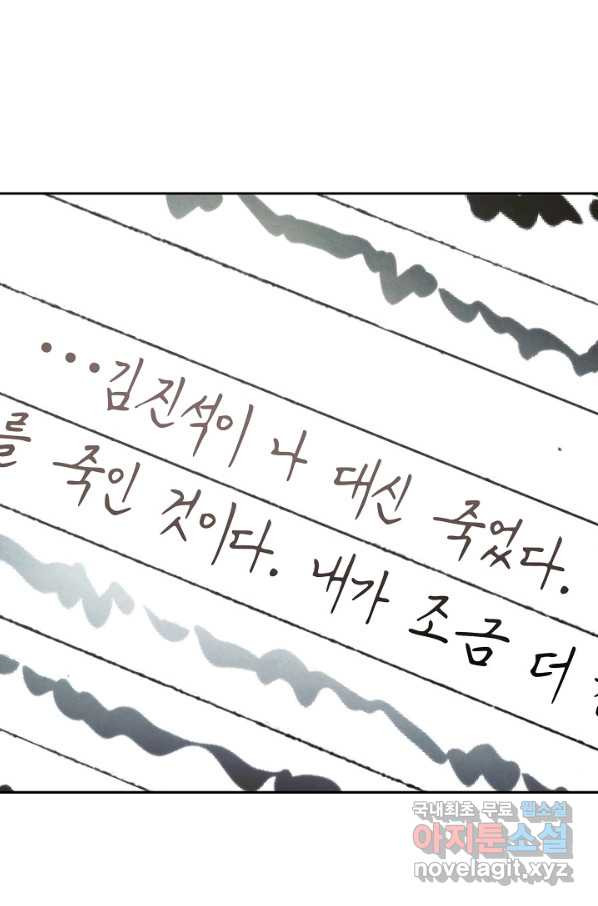 …김진석이 나 대신 죽었다.
를 죽인 것이다. 내가 조금 더
국내최초 무료 웹소설
아지툰소설
novelagit.xyz